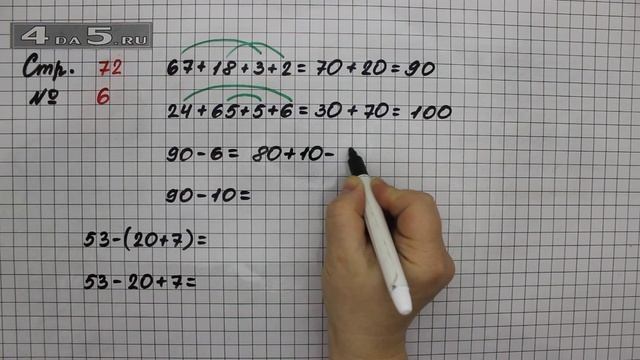 4ДА5.RU
Стр. 72 67+18+3+2=70+20=90
№ 6 24+65+5+6=30+70=100
90-6= 80+10-
90-10=
53-(20+7)=
53-20+7=